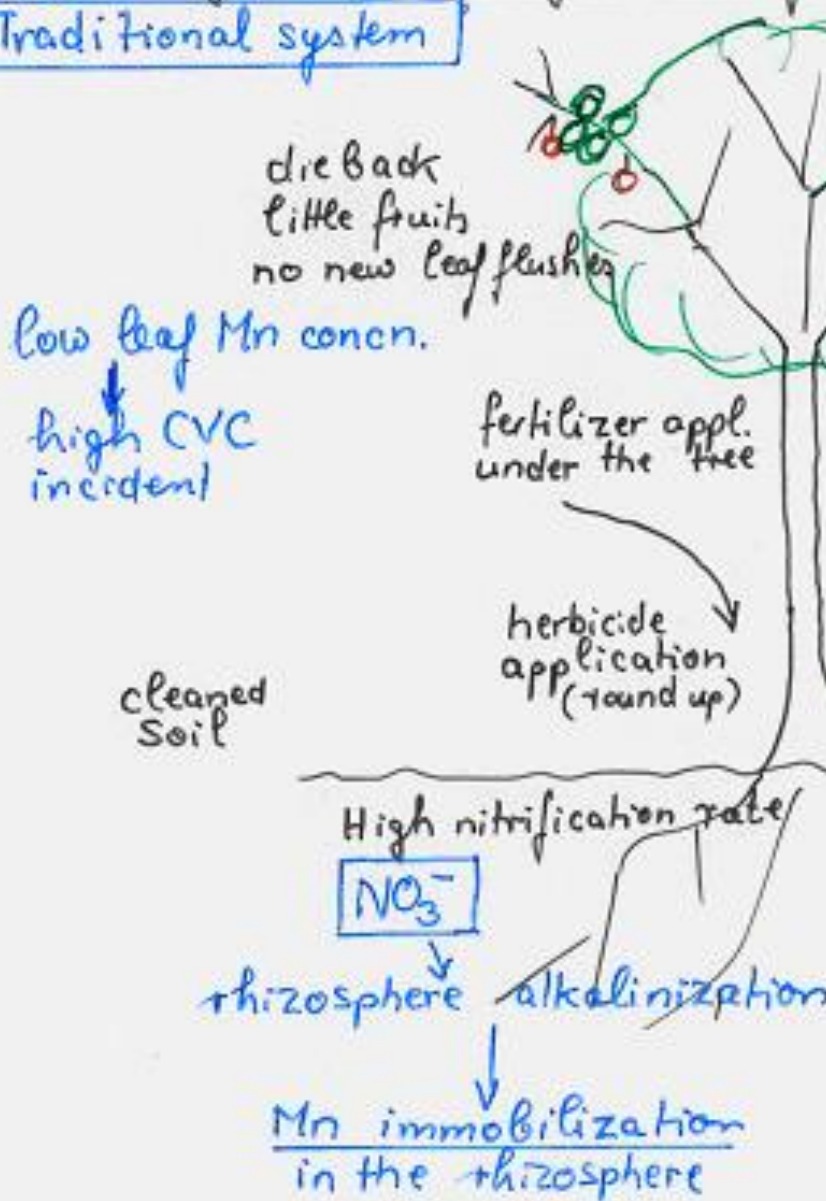 Traditional system
die back
little fruits
no new leaf flushes
low leaf Mn concn.
high CVC
incident
fertilizer appl.
under the tree
herbicide
application
(round up)
cleaned
soil
High nitrification rate
NO3-
rhizosphere alkalinization
Mn immobilization
in the rhizosphere